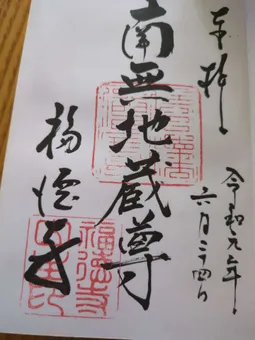 奉拝
令和元年
六月二十四日
南無地蔵尊
福徳寺